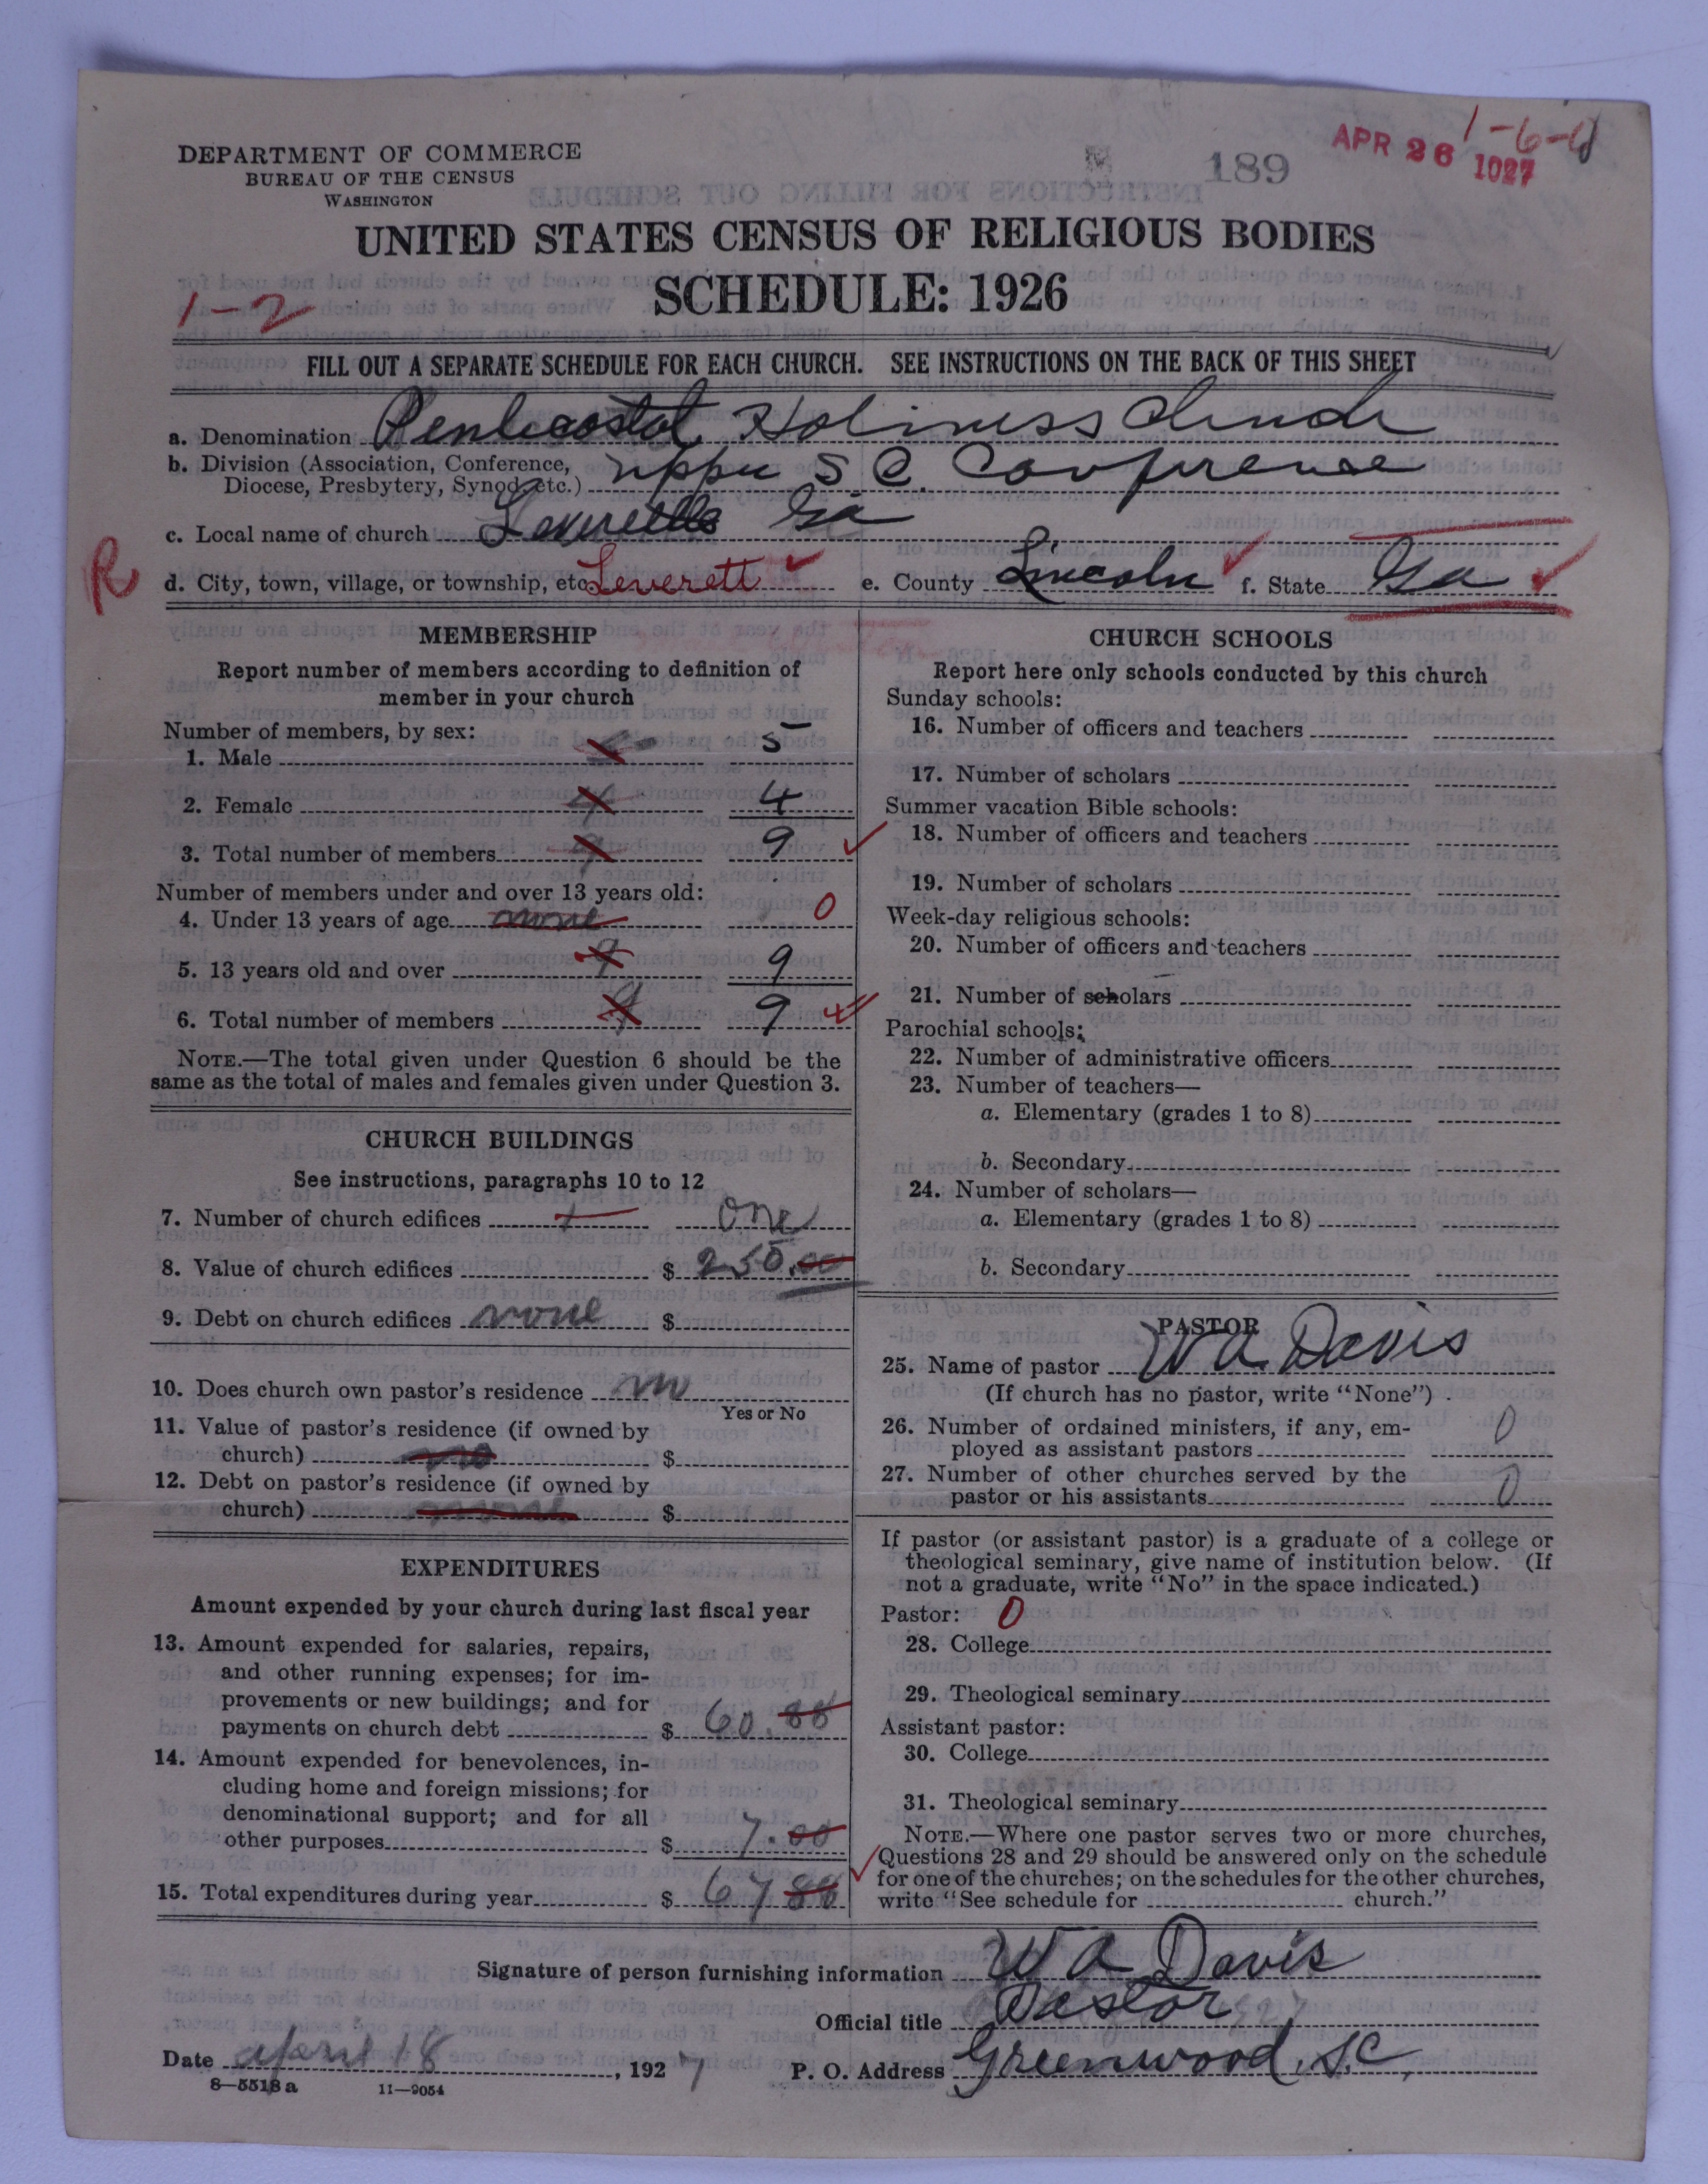 DEPARTMENT OF COMMERCE
BUREAU OF THE CENSUS
WASHINGTON
189
APR 26 1927
1-6-
UNITED STATES CENSUS OF RELIGIOUS BODIES
SCHEDULE: 1926
1-2
FILL OUT A SEPARATE SCHEDULE FOR EACH CHURCH. SEE INSTRUCTIONS ON THE BACK OF THIS SHEET
a. Denomination Pentecostal Holiness Church
b. Division (Association, Conference, Diocese, Presbytery, Synod, etc.) upper S C. Conference
c. Local name of church Leveretts Ga
R d. City, town, village, or township, etc. Leverett e. County Lincoln f. State Ga
MEMBERSHIP
Report number of members according to definition of
member in your church
Number of members, by sex:
1. Male 5 5
2. Female 4 4
3. Total number of members 9 9
Number of members under and over 13 years old:
4. Under 13 years of age none 0
5. 13 years old and over 9 9
6. Total number of members 9 9
NOTE.—The total given under Question 6 should be the
same as the total of males and females given under Question 3.
CHURCH BUILDINGS
See instructions, paragraphs 10 to 12
7. Number of church edifices 1 one
8. Value of church edifices $ 250.00
9. Debt on church edifices none $
10. Does church own pastor's residence no
Yes or No
11. Value of pastor's residence (if owned by
church) no $
12. Debt on pastor's residence (if owned by
church) none $
EXPENDITURES
Amount expended by your church during last fiscal year
13. Amount expended for salaries, repairs,
and other running expenses; for im-
provements or new buildings; and for
payments on church debt $ 60.88
14. Amount expended for benevolences, in-
cluding home and foreign missions; for
denominational support; and for all
other purposes $ 7.00
15. Total expenditures during year $ 67 88
CHURCH SCHOOLS
Report here only schools conducted by this church
Sunday schools:
16. Number of officers and teachers
17. Number of scholars
Summer vacation Bible schools:
18. Number of officers and teachers
19. Number of scholars
Week-day religious schools:
20. Number of officers and teachers
21. Number of scholars
Parochial schools:
22. Number of administrative officers
23. Number of teachers—
a. Elementary (grades 1 to 8)
b. Secondary
24. Number of scholars—
a. Elementary (grades 1 to 8)
b. Secondary
PASTOR
25. Name of pastor W A Davis
(If church has no pastor, write "None")
26. Number of ordained ministers, if any, em-
ployed as assistant pastors 0
27. Number of other churches served by the
pastor or his assistants 0
If pastor (or assistant pastor) is a graduate of a college or
theological seminary, give name of institution below. (If
not a graduate, write "No" in the space indicated.)
Pastor: 0
28. College
29. Theological seminary
Assistant pastor:
30. College
31. Theological seminary
NOTE.—Where one pastor serves two or more churches,
Questions 28 and 29 should be answered only on the schedule
for one of the churches; on the schedules for the other churches,
write "See schedule for church."
Signature of person furnishing information W A Davis
Official title Pastor
Date april 18, 1927 P. O. Address Greenwood, S.C.
8—5518 a 11—9054